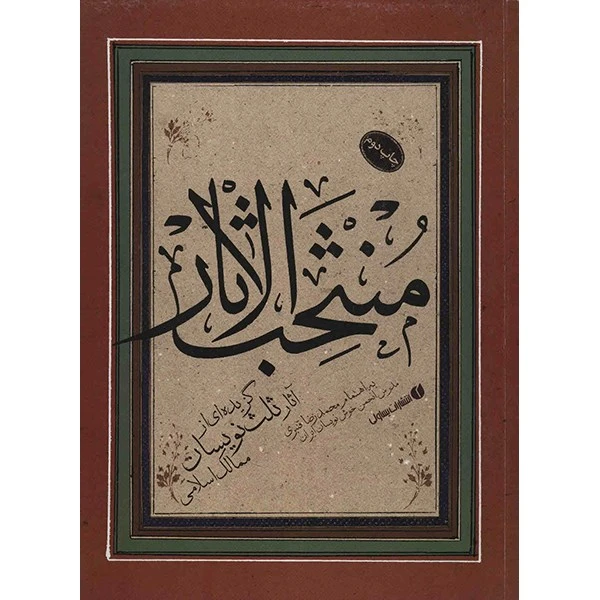 چاپ دوم
مُنْتَخَبُ الآثار
گزیده‌ای از
آثار ثلث‌نویسان
ممالک اسلامی
به راهنما محمدرضا قنبری
مدرس انجمن خوشنویسان ایران
انتشارات یساولی